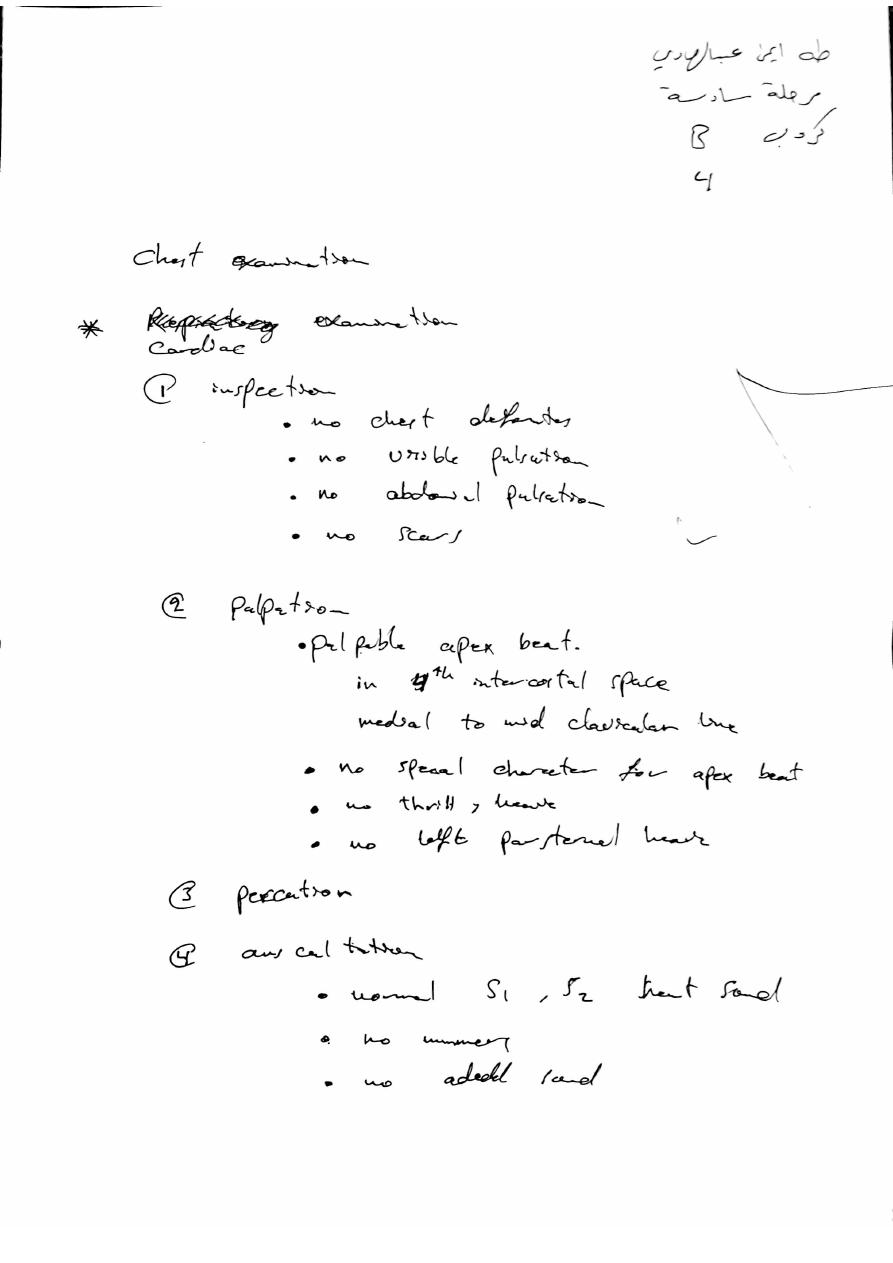 طه ايمن عبدالهادي
مرحلة سادسة
كروب B
4
Chest examination
* examination
Cardiac
① inspection
• no chest
• no visible pulsation
• no abdominal pulsation
• no scars
② palpation
• palpable apex beat.
in 4th intercostal space
medial to mid clavicular line
• no special character for apex beat
• no thrill, heave
• no left parsternal heave
③ percution
④ auscaltation
• normal S1, S2 heart sound
• no murmers
• no added sound